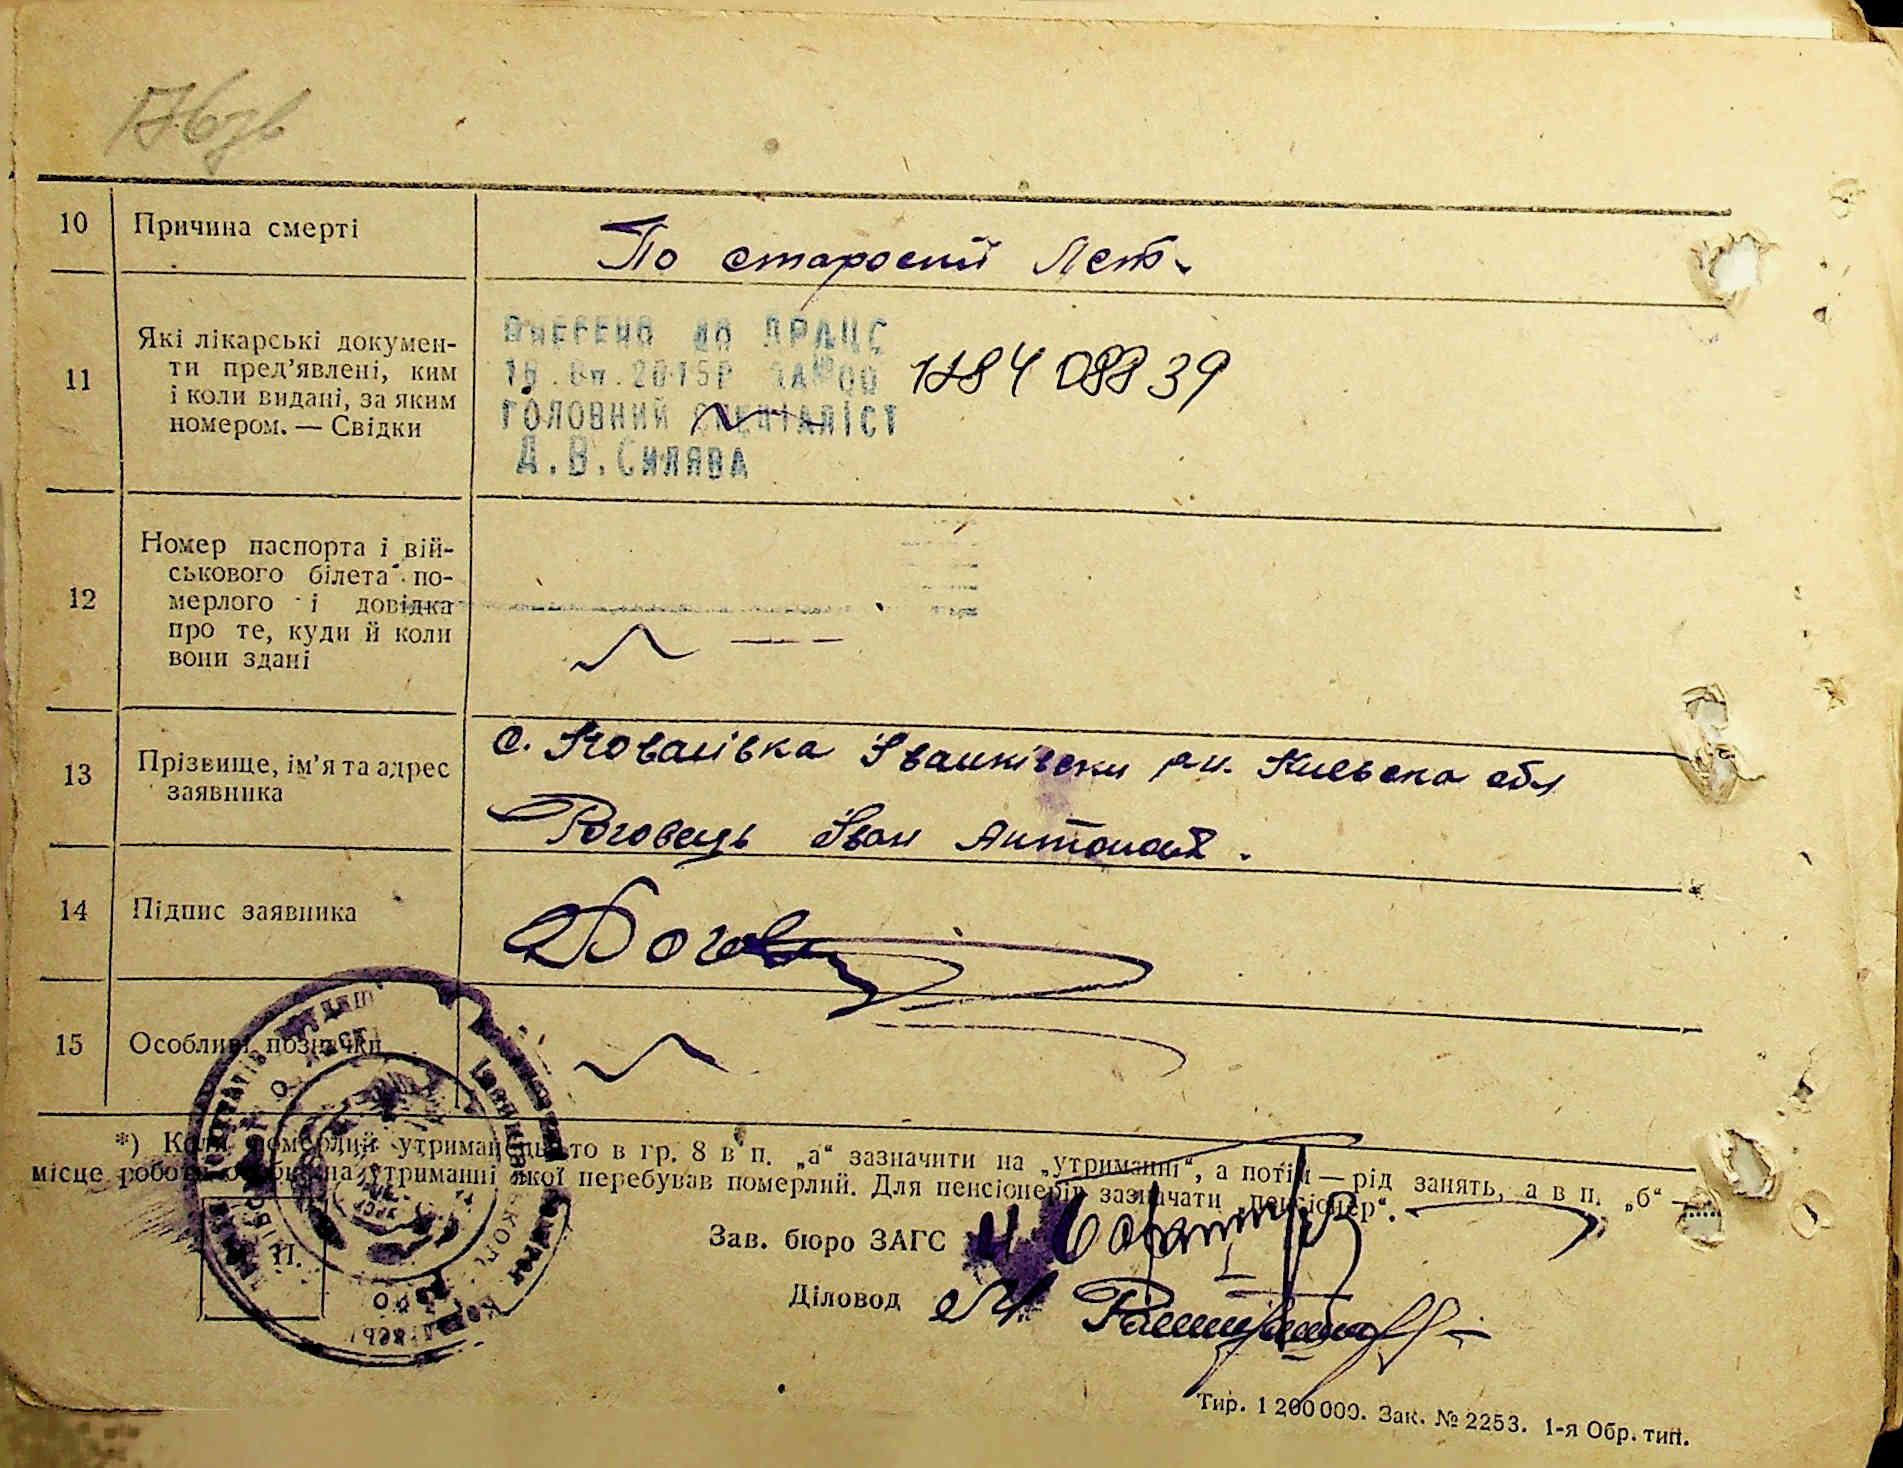 176зв
10 Причина смерті
По старости Лет.
11 Які лікарські докумен-
ти пред’явлені, ким
і коли видані, за яким
номером. — Свідки
ВНЕСЕНО ДО ДРАЦС
2015Р ЗА №00 118408839
ГОЛОВНИЙ СПЕЦІАЛІСТ
Д.В.СИЛЯВА
12 Номер паспорта і вій-
ськового білета по-
мерлого і довідка
про те, куди й коли
вони здані
13 Прізвище, ім’я та адрес
заявника
с. Коваливка Іванківски рн. Киевска обл
Роговець Іван Антонов.
14 Підпис заявника
Рогов
15 Особливі позначки
*) Коли померлий утриманець, то в гр. 8 в п. „а“ зазначити на „утриманні“, а потім — рід занять, а в п. „б“ —
місце роботи особи, на утриманні якої перебував померлий. Для пенсіонерів зазначати „пенсіонер“.
П.
Зав. бюро ЗАГС
Діловод
Тир. 1 200 000. Зак. № 2253. 1-я Обр. тип.